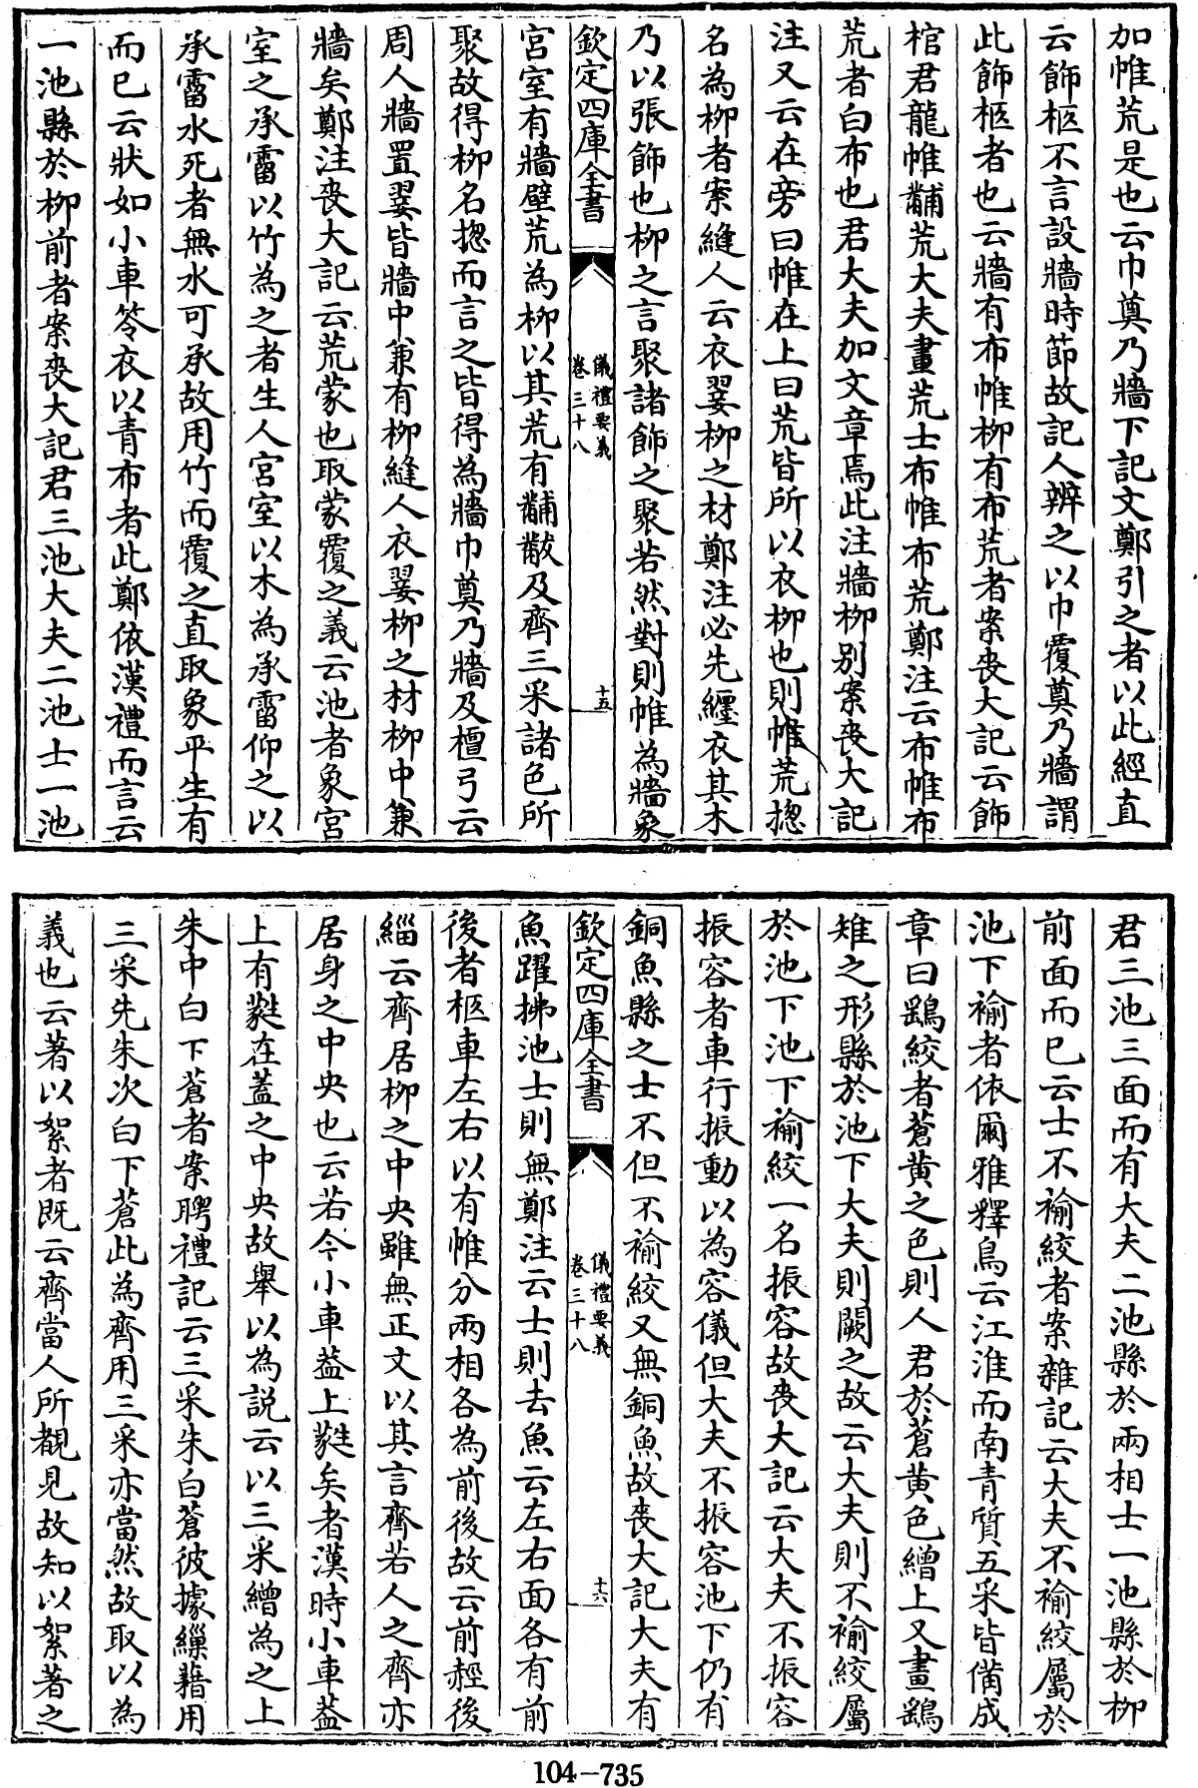 加帷荒是也云巾奠乃牆下記文鄭引之者以此經直
云飾柩不言設牆時節故記人辨之以巾覆奠乃牆謂
此飾柩者也云牆有布帷柳有布荒者案喪大記云飾
棺君龍帷黼荒大夫畫荒士布帷布荒鄭注云布帷布
荒者白布也君大夫加文章焉此注牆柳別案喪大記
注又云在旁曰帷在上曰荒皆所以衣柳也則帷荒揔
名為柳者案縫人云衣翣柳之材鄭注必先纏衣其木
乃以張飾也柳之言聚諸飾之聚若然對則帷為牆象
欽定四庫全書
儀禮要義
卷三十八
十五
宮室有牆壁荒為柳以其荒有黼黻及齊三采諸色所
聚故得柳名揔而言之皆得為牆巾奠乃牆及檀弓云
周人牆置翣皆牆中兼有柳縫人衣翣柳之材柳中兼
牆矣鄭注喪大記云荒蒙也取蒙覆之義云池者象宮
室之承霤以竹為之者生人宮室以木為承霤仰之以
承霤水死者無水可承故用竹而覆之直取象平生有
而已云狀如小車笭衣以青布者此鄭依漢禮而言云
一池縣於柳前者案喪大記君三池大夫二池士一池
君三池三面而有大夫二池縣於兩相士一池縣於柳
前面而已云士不揄絞者案雜記云大夫不揄絞屬於
池下揄者依爾雅釋鳥云江淮而南青質五采皆備成
章曰鷂絞者蒼黃之色則人君於蒼黃色繒上又畫鷂
雉之形縣於池下大夫則闕之故云大夫則不揄絞屬
於池下池下揄絞一名振容故喪大記云大夫不振容
振容者車行振動以為容儀但大夫不振容池下仍有
銅魚縣之士不但不揄絞又無銅魚故喪大記大夫有
欽定四庫全書
儀禮要義
卷三十八
十六
魚躍拂池士則無鄭注云士則去魚云左右面各有前
後者柩車左右以有帷分兩相各為前後故云前經後
緇云齊居柳之中央雖無正文以其言齊若人之齊亦
居身之中央也云若今小車蓋上蕤矣者漢時小車蓋
上有蕤在蓋之中央故舉以為說云以三采繒為之上
朱中白下蒼者案聘禮記云三采朱白蒼彼據繅藉用
三采先朱次白下蒼此為齊用三采亦當然故取以為
義也云著以絮者既云齊當人所覩見故知以絮著之
104-735